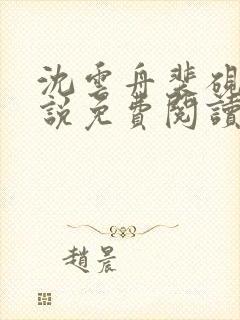 沈雲舟裴硯
說免費閱讀
趙晨